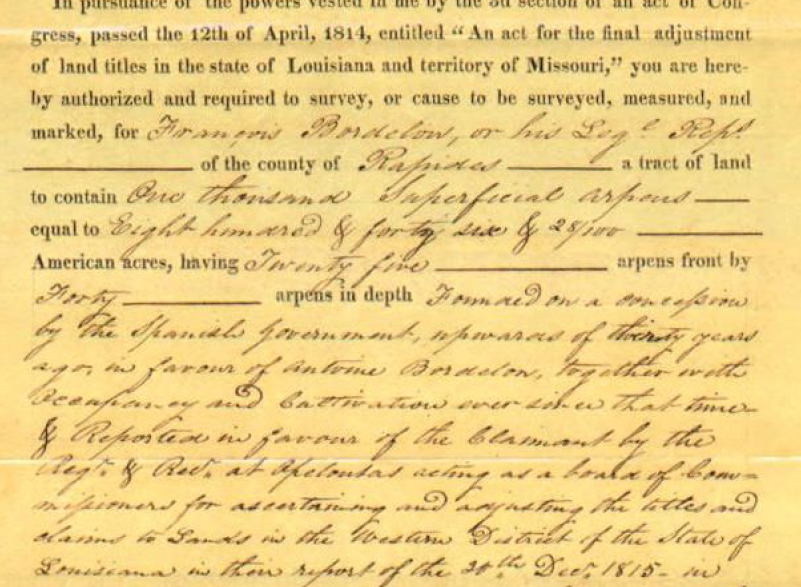 In pursuance of the powers vested in me by the 3d section of an act of Con-
gress, passed the 12th of April, 1814, entitled "An act for the final adjustment
of land titles in the state of Louisiana and territory of Missouri," you are here-
by authorized and required to survey, or cause to be surveyed, measured, and
marked, for François Bordelon, or his Legl Rept
of the county of Rapides a tract of land
to contain One thousand Superficial arpens
equal to Eight hundred & forty six & 28/100
American acres, having Twenty five arpens front by
Forty arpens in depth Founded on a concession
by the Spanish Government, upwards of years
ago, in favour of Antoine Bordelon, together with
Occupancy and Cultivation ever since that time
& Reported in favour of the Claimant by the
Regr & Recr at Opelousas acting as a board of Com=
missioners for ascertaining and adjusting the titles and
claims to Lands in the Western District of the State of
Louisiana in their report of the 30th Decr 1815 - in